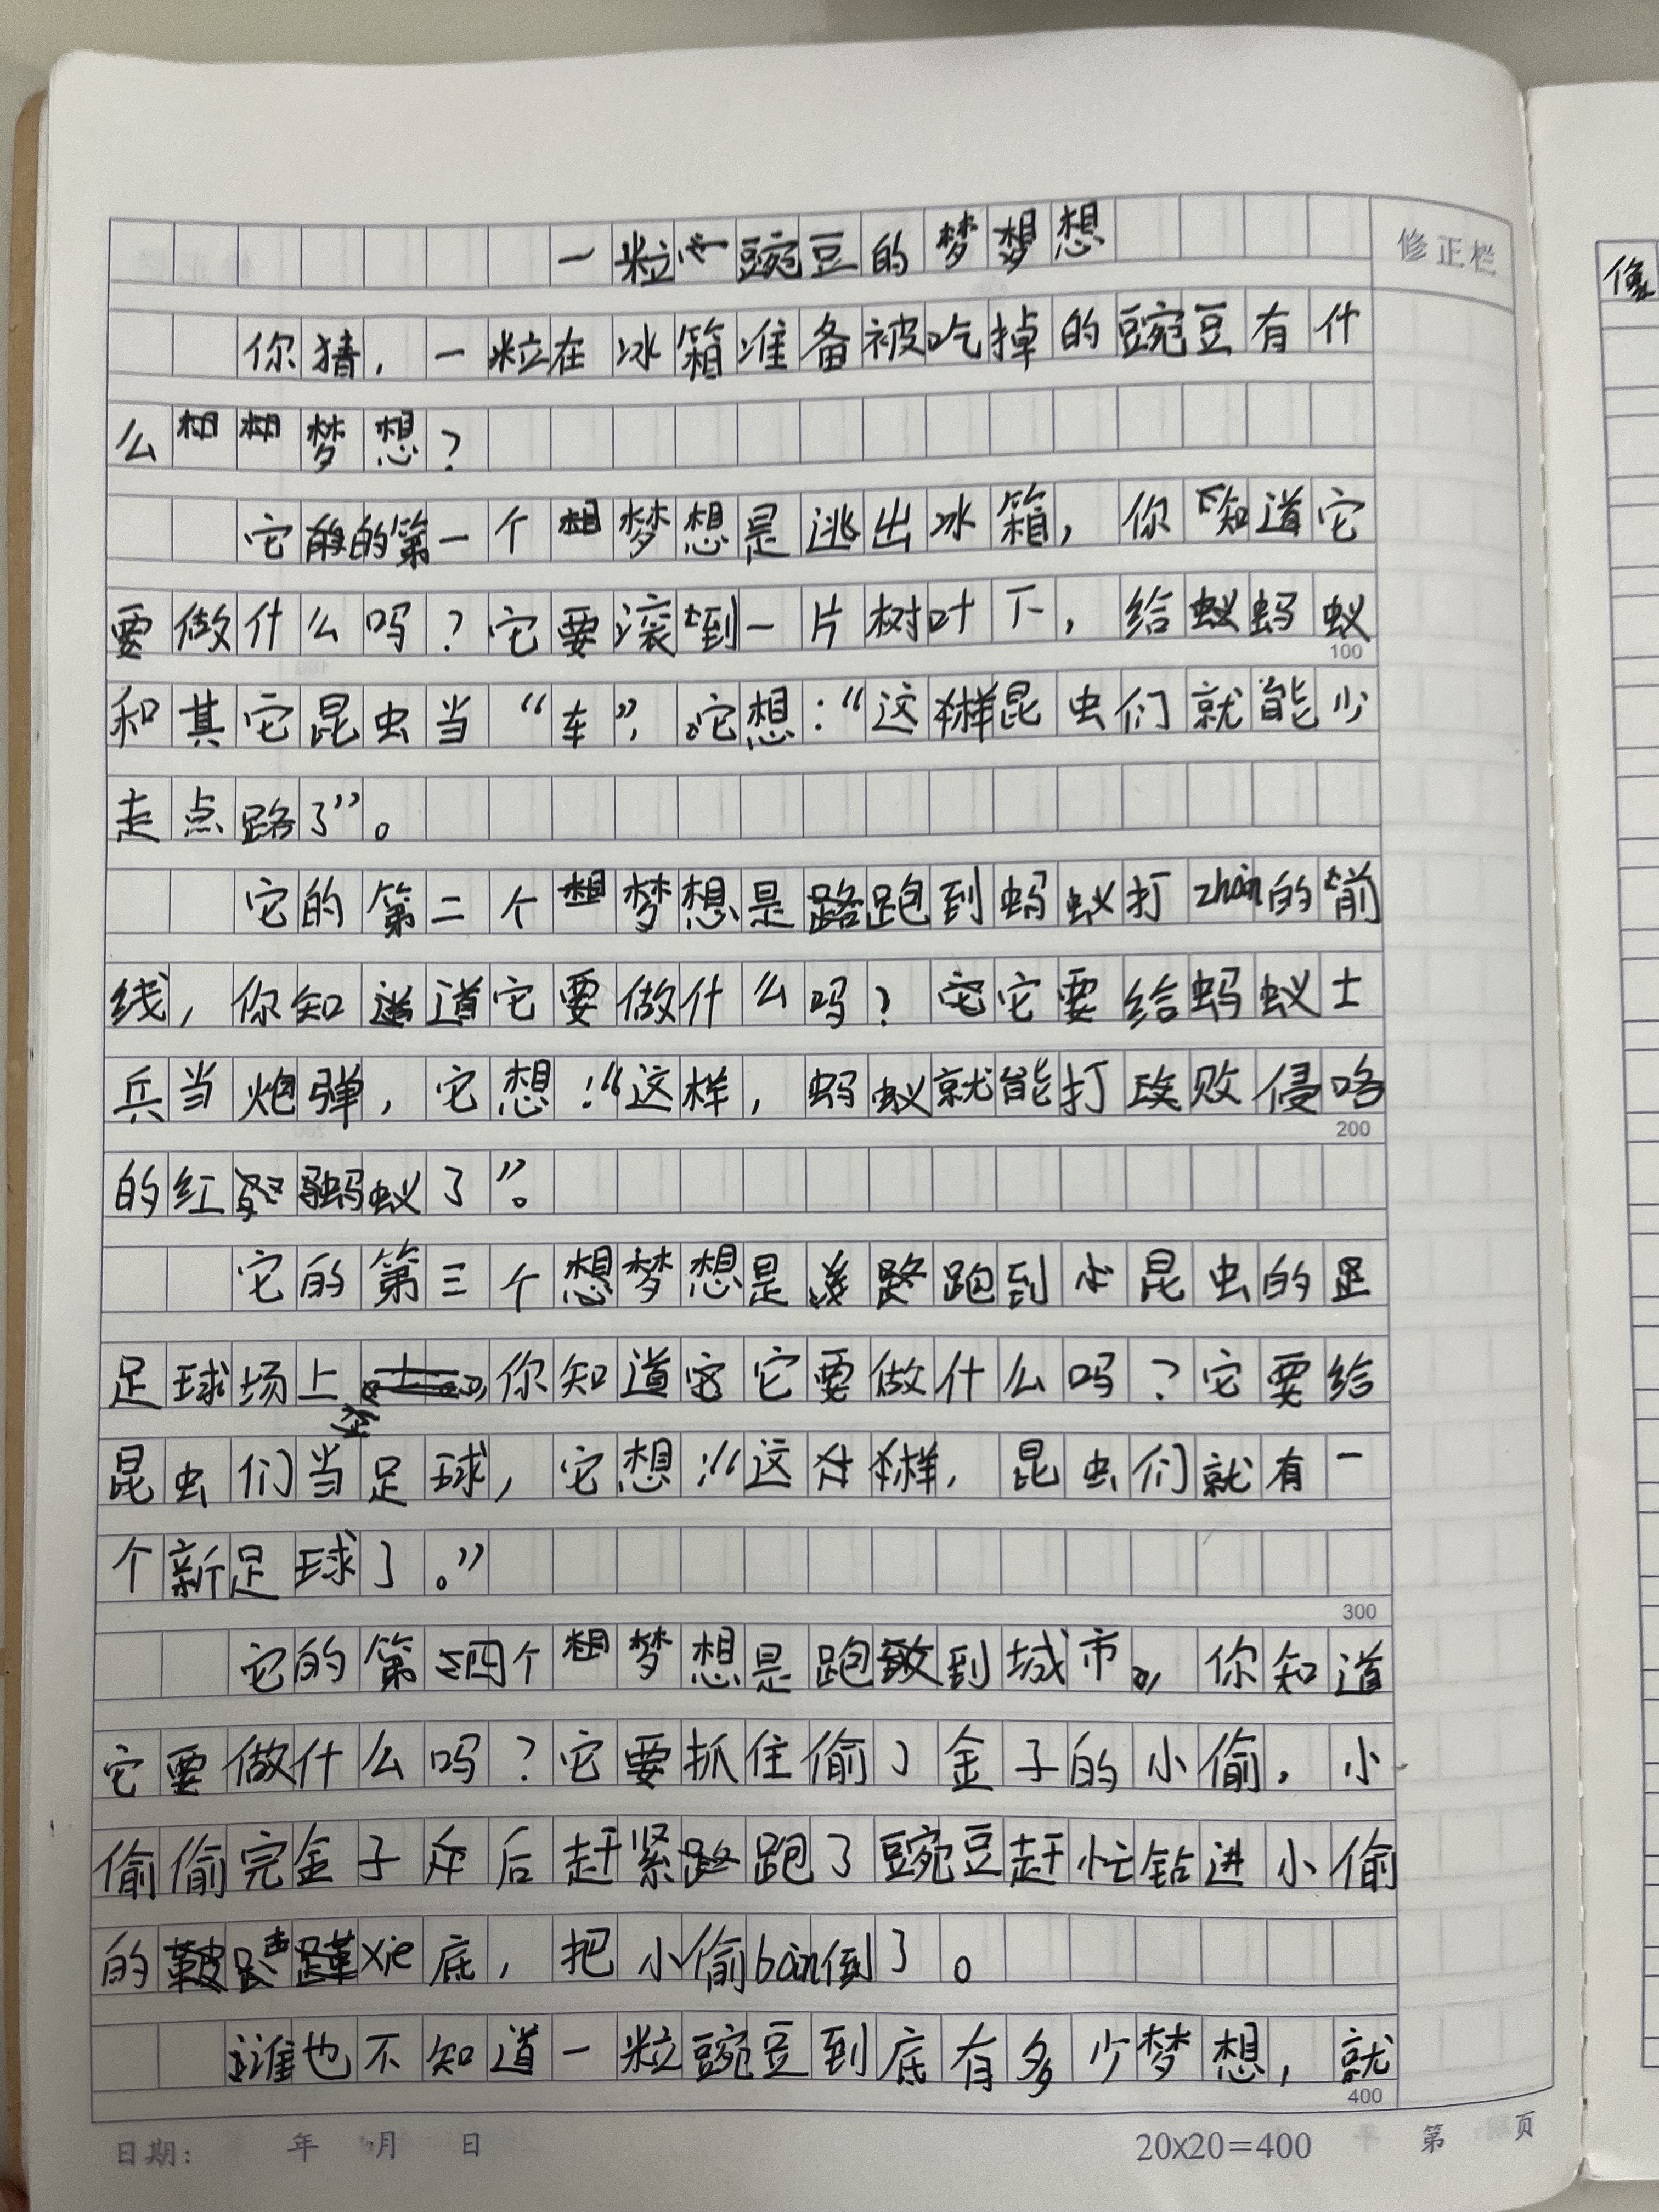 一粒豌豆的梦想
修正栏
你猜，一粒在冰箱准备被吃掉的豌豆有什
么梦想？
它的第一个梦想是逃出冰箱，你知道它
要做什么吗？它要滚到一片树叶下，给蚂蚁
100
和其它昆虫当“车”，它想：“这样昆虫们就能少
走点路了”。
它的第二个梦想是跑到蚂蚁打zhàn的前
线，你知道它要做什么吗？它要给蚂蚁士
兵当炮弹，它想：“这样，蚂蚁就能打败侵咯
200
的红蚂蚁了”。
它的第三个梦想是跑到小昆虫的
足球场上，你知道它要做什么吗？它要给
昆虫们当足球，它想：“这样，昆虫们就有一
个新足球了。”
300
它的第四个梦想是跑到城市，你知道
它要做什么吗？它要抓住偷了金子的小偷，小
偷偷完金子后赶紧跑了豌豆赶忙钻进小偷
的xié底，把小偷bàn倒了。
谁也不知道一粒豌豆到底有多少梦想，就
400
日期： 年 月 日
20×20=400 第 页
像